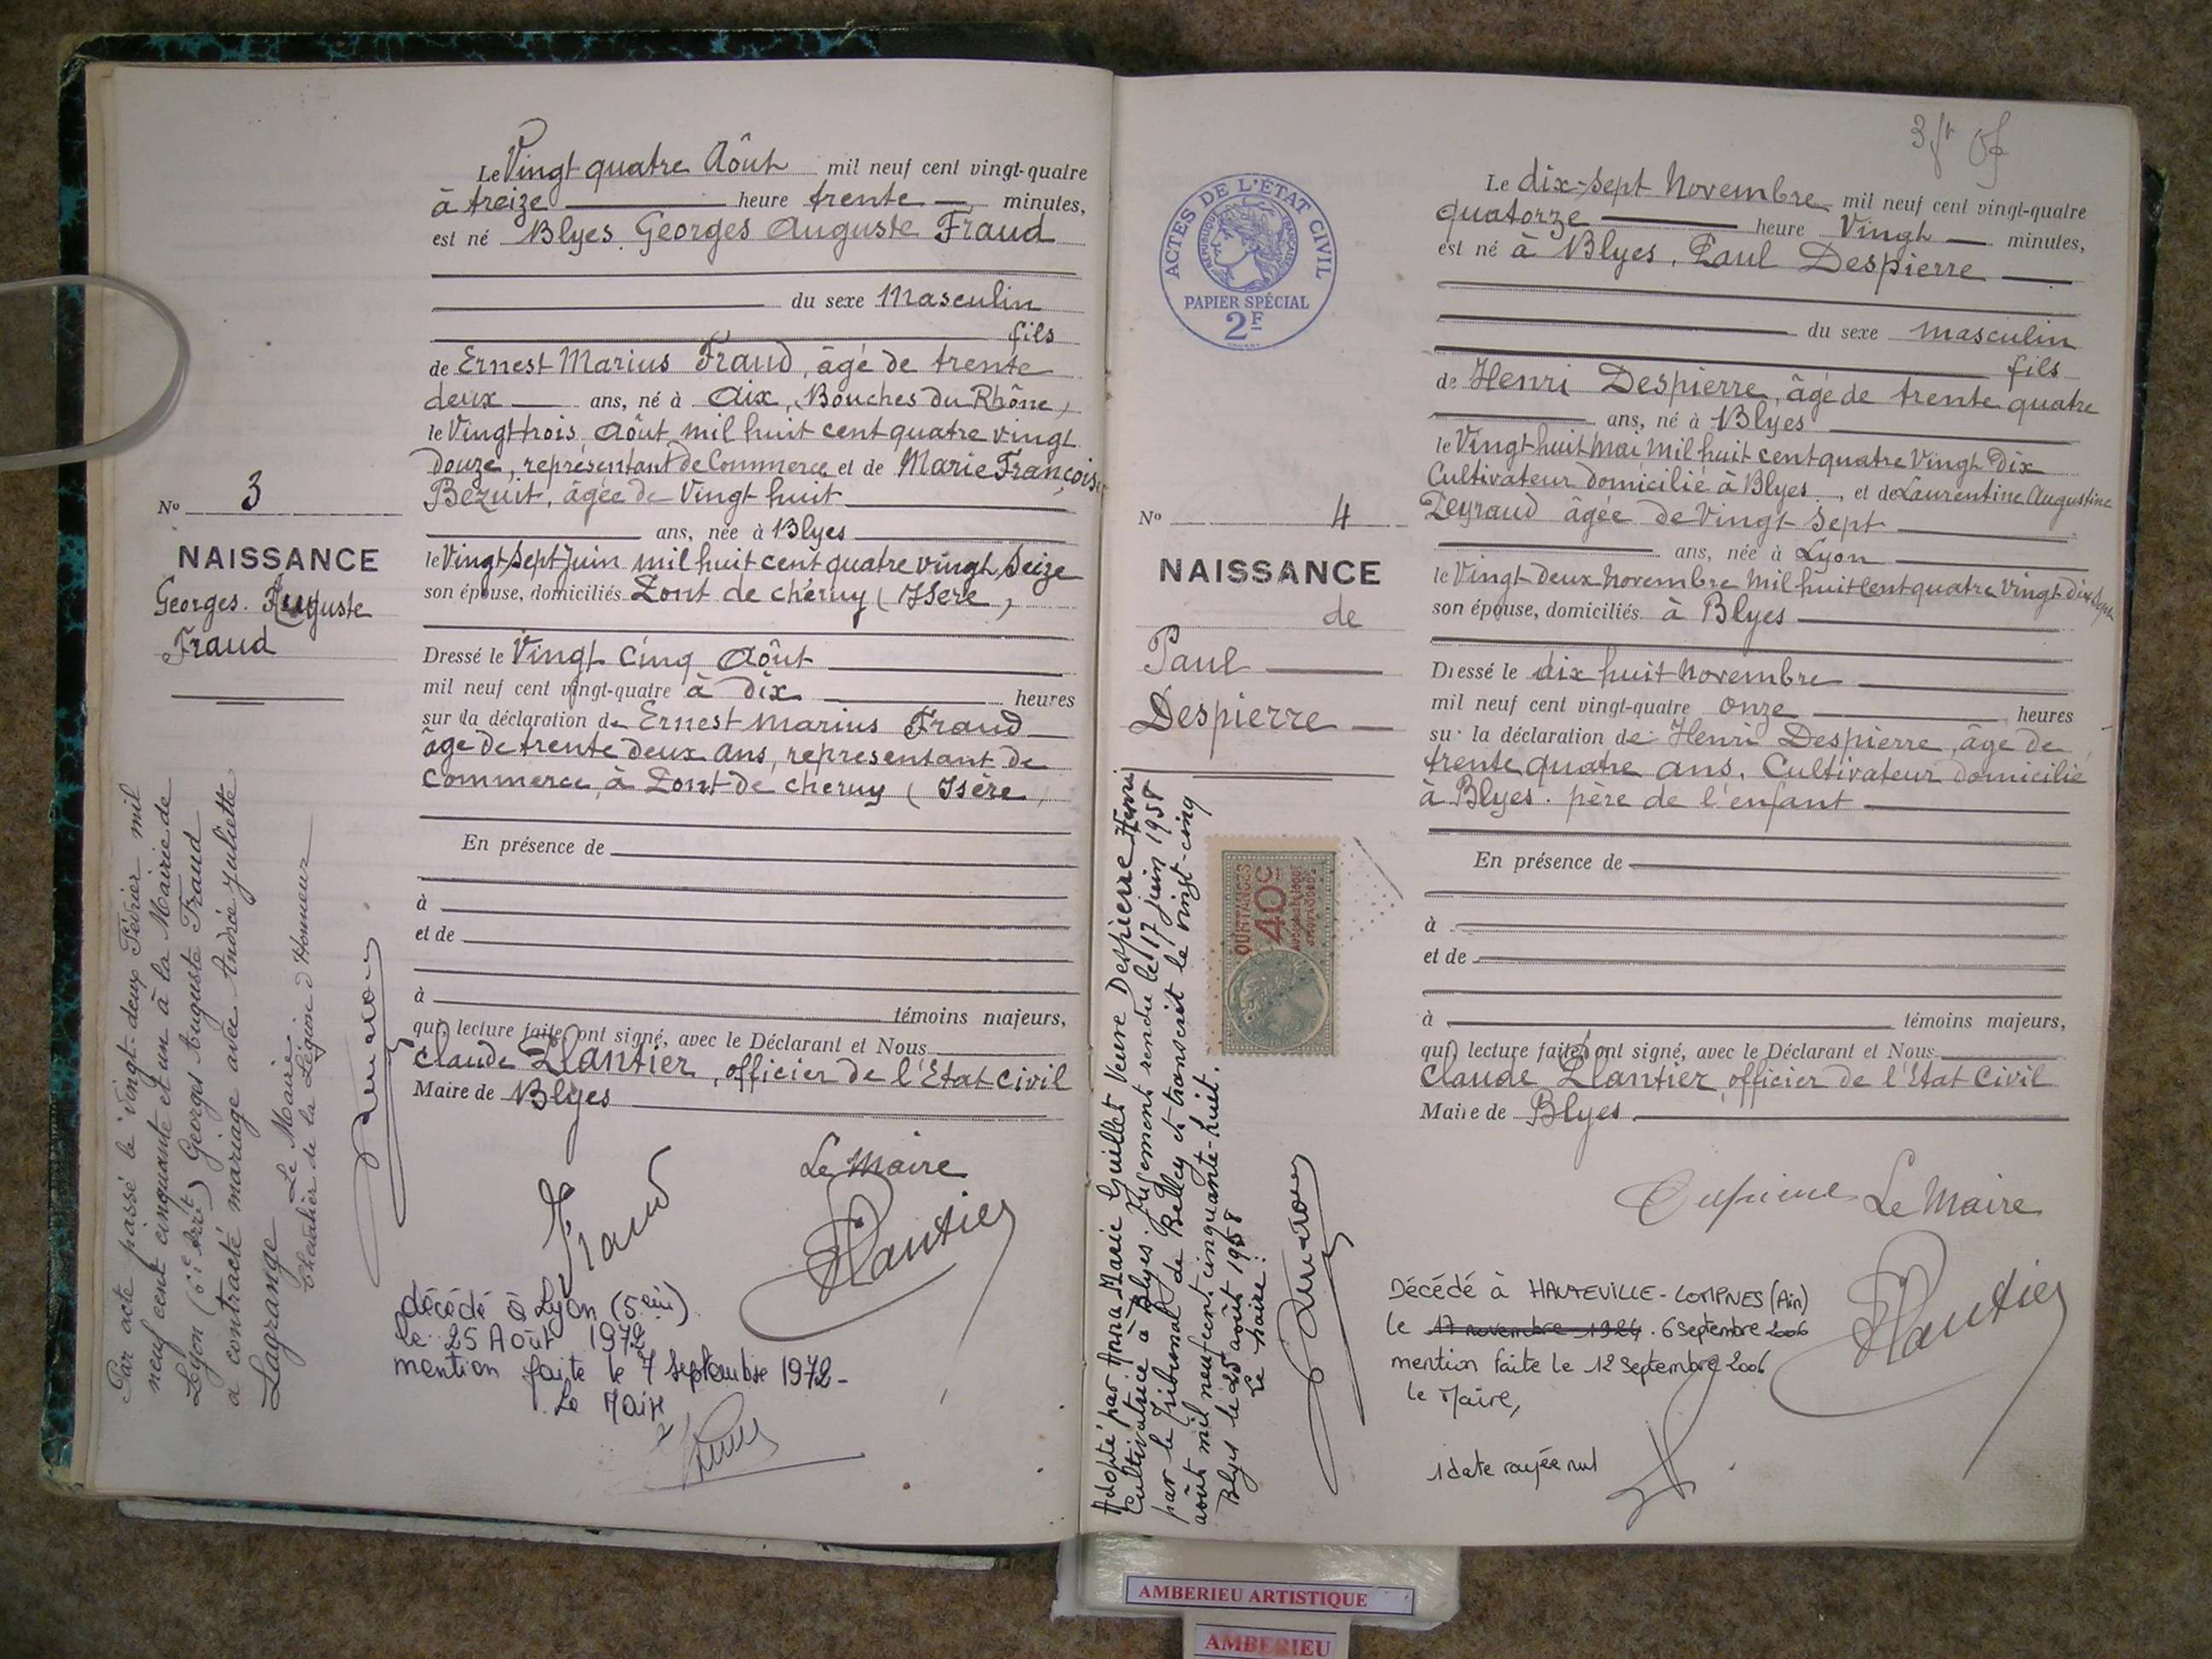 Le Vingt quatre Août mil neuf cent vingt-quatre
à treize heure trente minutes,
est né Blyes Georges Auguste Fraud
du sexe Masculin
fils
de Ernest Marius Fraud, âgé de trente
deux ans, né à Aix, (Bouches du Rhône)
le Vingt trois Août mil huit cent quatre vingt
douze, représentant de Commerce et de Marie Françoise
Bezuit, âgée de Vingt huit
ans, née à Blyes
le Vingt Sept Juin mil huit cent quatre vingt Seize
son épouse, domiciliés Pont de chéruy (Isère)
Dressé le Vingt Cinq Août
mil neuf cent vingt-quatre à dix heures
sur la déclaration de Ernest Marius Fraud
âgé de trente deux ans, représentant de
Commerce, à Pont de cheruy (Isère)
En présence de
à
et de
à
témoins majeurs,
qui, lecture faite, ont signé, avec le Déclarant et Nous
Claude Plantier, officier de l'Etat Civil
Maire de Blyes
Le Maire
Fraud
Plantier
décédé à Lyon (5ème)
le 25 Août 1972
mention faite le 7 Septembre 1972-
Le Maire
No 3
NAISSANCE
Georges Auguste
Fraud
Par acte passé le vingt-deux Février mil
neuf cent cinquante et un à la Mairie de
Lyon (6e Arrt) Georges Auguste Fraud
a contracté mariage avec Andrée Juliette
Lagrange
Le Maire
Chevalier de la Légion d'Honneur
3 ft Of
ACTES DE L'ÉTAT CIVIL
RÉPUBLIQUE FRANÇAISE
PAPIER SPÉCIAL
2F
No 4
NAISSANCE
de
Paul
Despierre
Adopté par Anna Marie Guillet Veuve Despierre Henri
Cultivatrice à Blyes. Jugement rendu le 17 juin 1958
par le Tribunal de Belley et transcrit le vingt-cinq
août mil neuf cent cinquante-huit.
Blyes le 25 août 1958
Le Maire:
QUITTANCES
40c
Le dix-sept Novembre mil neuf cent vingt-quatre
quatorze heure Vingt minutes,
est né à Blyes, Paul Despierre
du sexe masculin
fils
de Henri Despierre, âgé de trente quatre
ans, né à Blyes
le Vingt huit Mai Mil huit cent quatre Vingt Dix
Cultivateur domicilié à Blyes, et de Laurentine Augustine
Peyraud âgée de Vingt Sept
ans, née à Lyon
le Vingt Deux Novembre Mil huit Cent quatre Vingt Dix Sept
son épouse, domiciliés à Blyes
Dressé le dix huit Novembre
mil neuf cent vingt-quatre Onze heures
sur la déclaration de Henri Despierre, âgé de
trente quatre ans, Cultivateur domicilié
à Blyes. père de l'enfant
En présence de
à
et de
à
témoins majeurs,
qui, lecture faite, ont signé, avec le Déclarant et Nous
Claude Plantier, officier de l'Etat Civil
Maire de Blyes
Despierre Le Maire
Plantier
Décédé à HAUTEVILLE-LOMPNES (Ain)
le 17 novembre 1924. 6 Septembre 2006
mention faite le 12 Septembre 2006
le Maire,
1 date rayée nul
AMBERIEU ARTISTIQUE
AMBERIEU